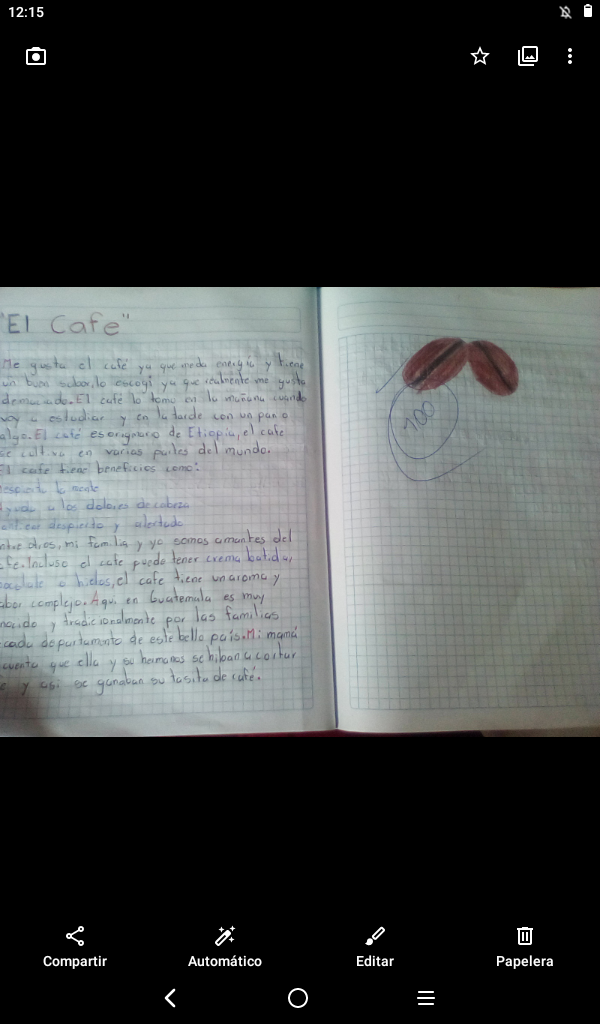 12:15
"El Cafe"
Me gusta el café ya que me da energía y tiene
un buen sabor, lo escogi ya que realmente me gusta
demaciado. El café lo tomo en la mañana cuando
voy a estudiar y en la tarde con un pan o
algo. El café es originaro de Etiopia, el cafe
se cultiva en varias partes del mundo.
El cafe tiene beneficios como:
espierta la mente
Ayuda a los dolores de cabeza
despierto y alertado
ntre otros, mi familia y yo somos amantes del
fe. Incluso el cafe puede tener crema batida,
hocolate o hielos, el cafe tiene un aroma y
abor complejo. Aqui en Guatemala es muy
nocido y tradicionalmente por las familias
cada departamento de este bello pais. Mi mamá
cuenta que ella y su hermanos se hiban a cortar
e y asi se ganaban su tasita de café.
100
Compartir
Automático
Editar
Papelera